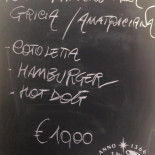 GRICIA / AMATRICIANA
- COTOLETTA
- HAMBURGER
- HOT DOG
€ 19,00
ANNO 1366